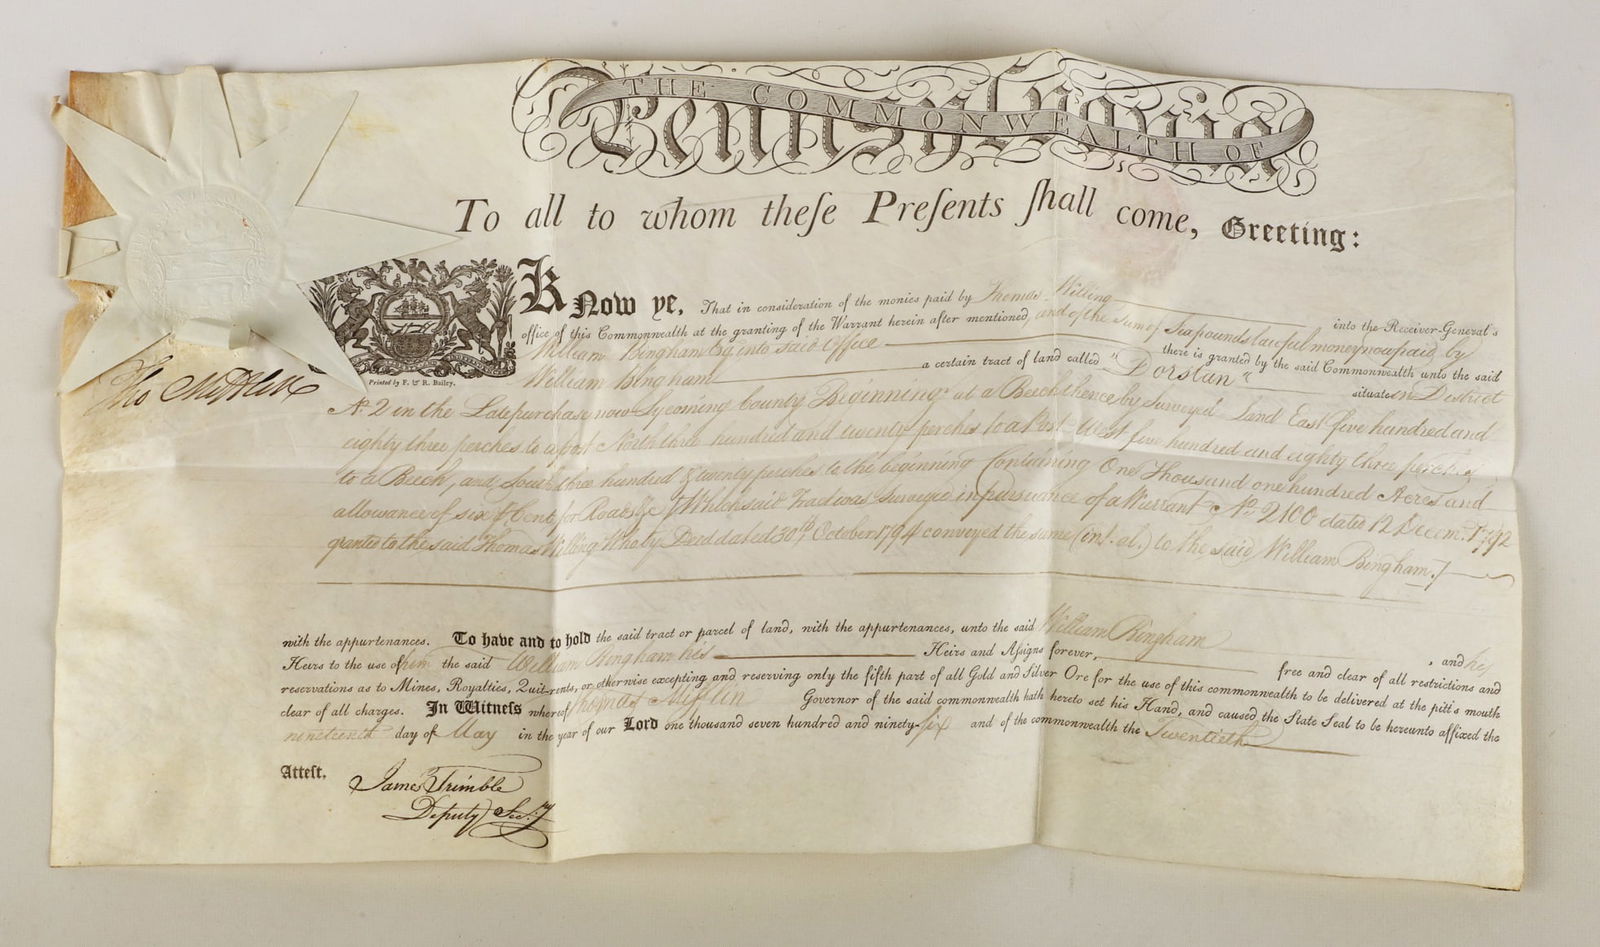 THE COMMONWEALTH OF
Pennsylvania
To all to whom theſe Preſents ſhall come, Greeting:
Know ye, That in consideration of the monies paid by Thomas Willing into the Receiver-General's
office of this Commonwealth at the granting of the Warrant herein after mentioned, and of the sum of pounds lawful money now paid by
William Bingham Esq into said Office there is granted by the said Commonwealth unto the said
William Bingham a certain tract of land called "Dorstan" situate in District
No. 2 in the Late purchase now Lycoming County Beginning at a Beech thence by Surveyed Land East five hundred and
eighty three perches to a post North three hundred and twenty perches to a Post West five hundred and eighty three perches
to a Beech, and South three hundred & twenty perches to the beginning Containing One Thousand one hundred Acres and
allowance of six P Cent for Roads &c [Which said Tract was Surveyed in pursuance of a Warrant No. 2100 dated 12 Decem. 1792
granted to the said Thomas Willing Who by Deed dated 30th October 1794 conveyed the same (int. al.) to the said William Bingham.]
with the appurtenances. To have and to hold the said tract or parcel of land, with the appurtenances, unto the said William Bingham, and his
Heirs to the use of him the said William Bingham his Heirs and Aſsigns forever, free and clear of all restrictions and
reservations as to Mines, Royalties, Quit-rents, or otherwise excepting and reserving only the fifth part of all Gold and Silver Ore for the use of this commonwealth to be delivered at the pitt's mouth
clear of all charges. In Witneſs whereof Thomas Mifflin Governor of the said commonwealth hath hereto set his Hand, and caused the State Seal to be hereunto affixed the
nineteenth day of May in the year of our Lord one thousand seven hundred and ninety-six and of the commonwealth the Twentieth
Printed by F. & R. Bailey.
Tho Mifflin
Atteſt.
James Trimble
Deputy Sec.y